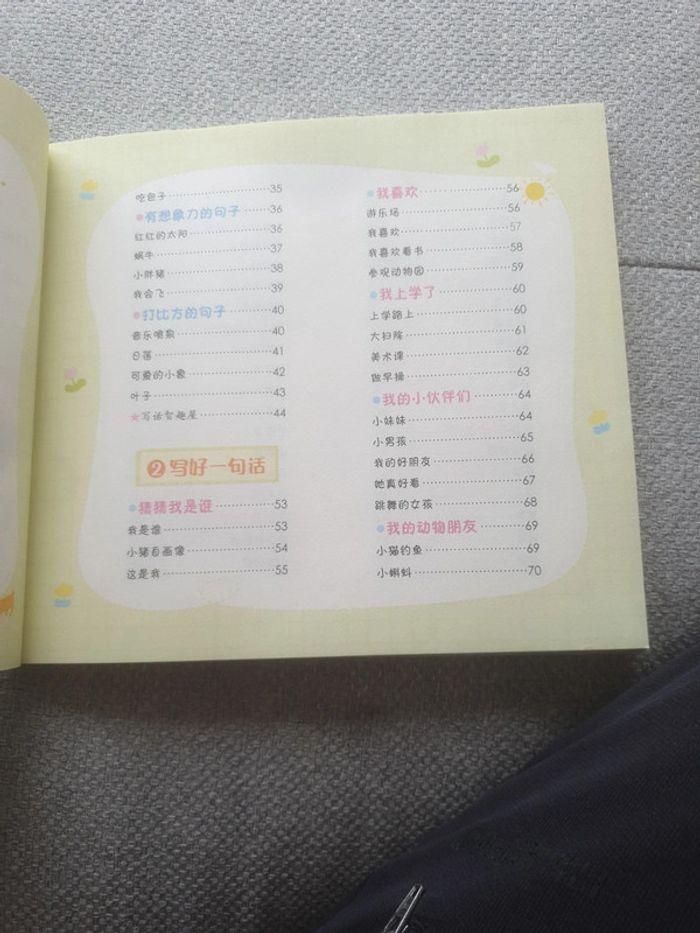 吃包子 35
有想象力的句子 36
红红的太阳 36
蜗牛 37
小胖猪 38
我会飞 39
打比方的句子 40
音乐喷泉 40
日落 41
可爱的小象 42
叶子 43
★写话智趣屋 44
2 写好一句话
猜猜我是谁 53
我是谁 53
小猪自画像 54
这是我 55
我喜欢 56
游乐场 56
我喜欢 57
我喜欢看书 58
参观动物园 59
我上学了 60
上学路上 60
大扫除 61
美术课 62
做早操 63
我的小伙伴们 64
小妹妹 64
小男孩 65
我的好朋友 66
她真好看 67
跳舞的女孩 68
我的动物朋友 69
小猫钓鱼 69
小蝌蚪 70